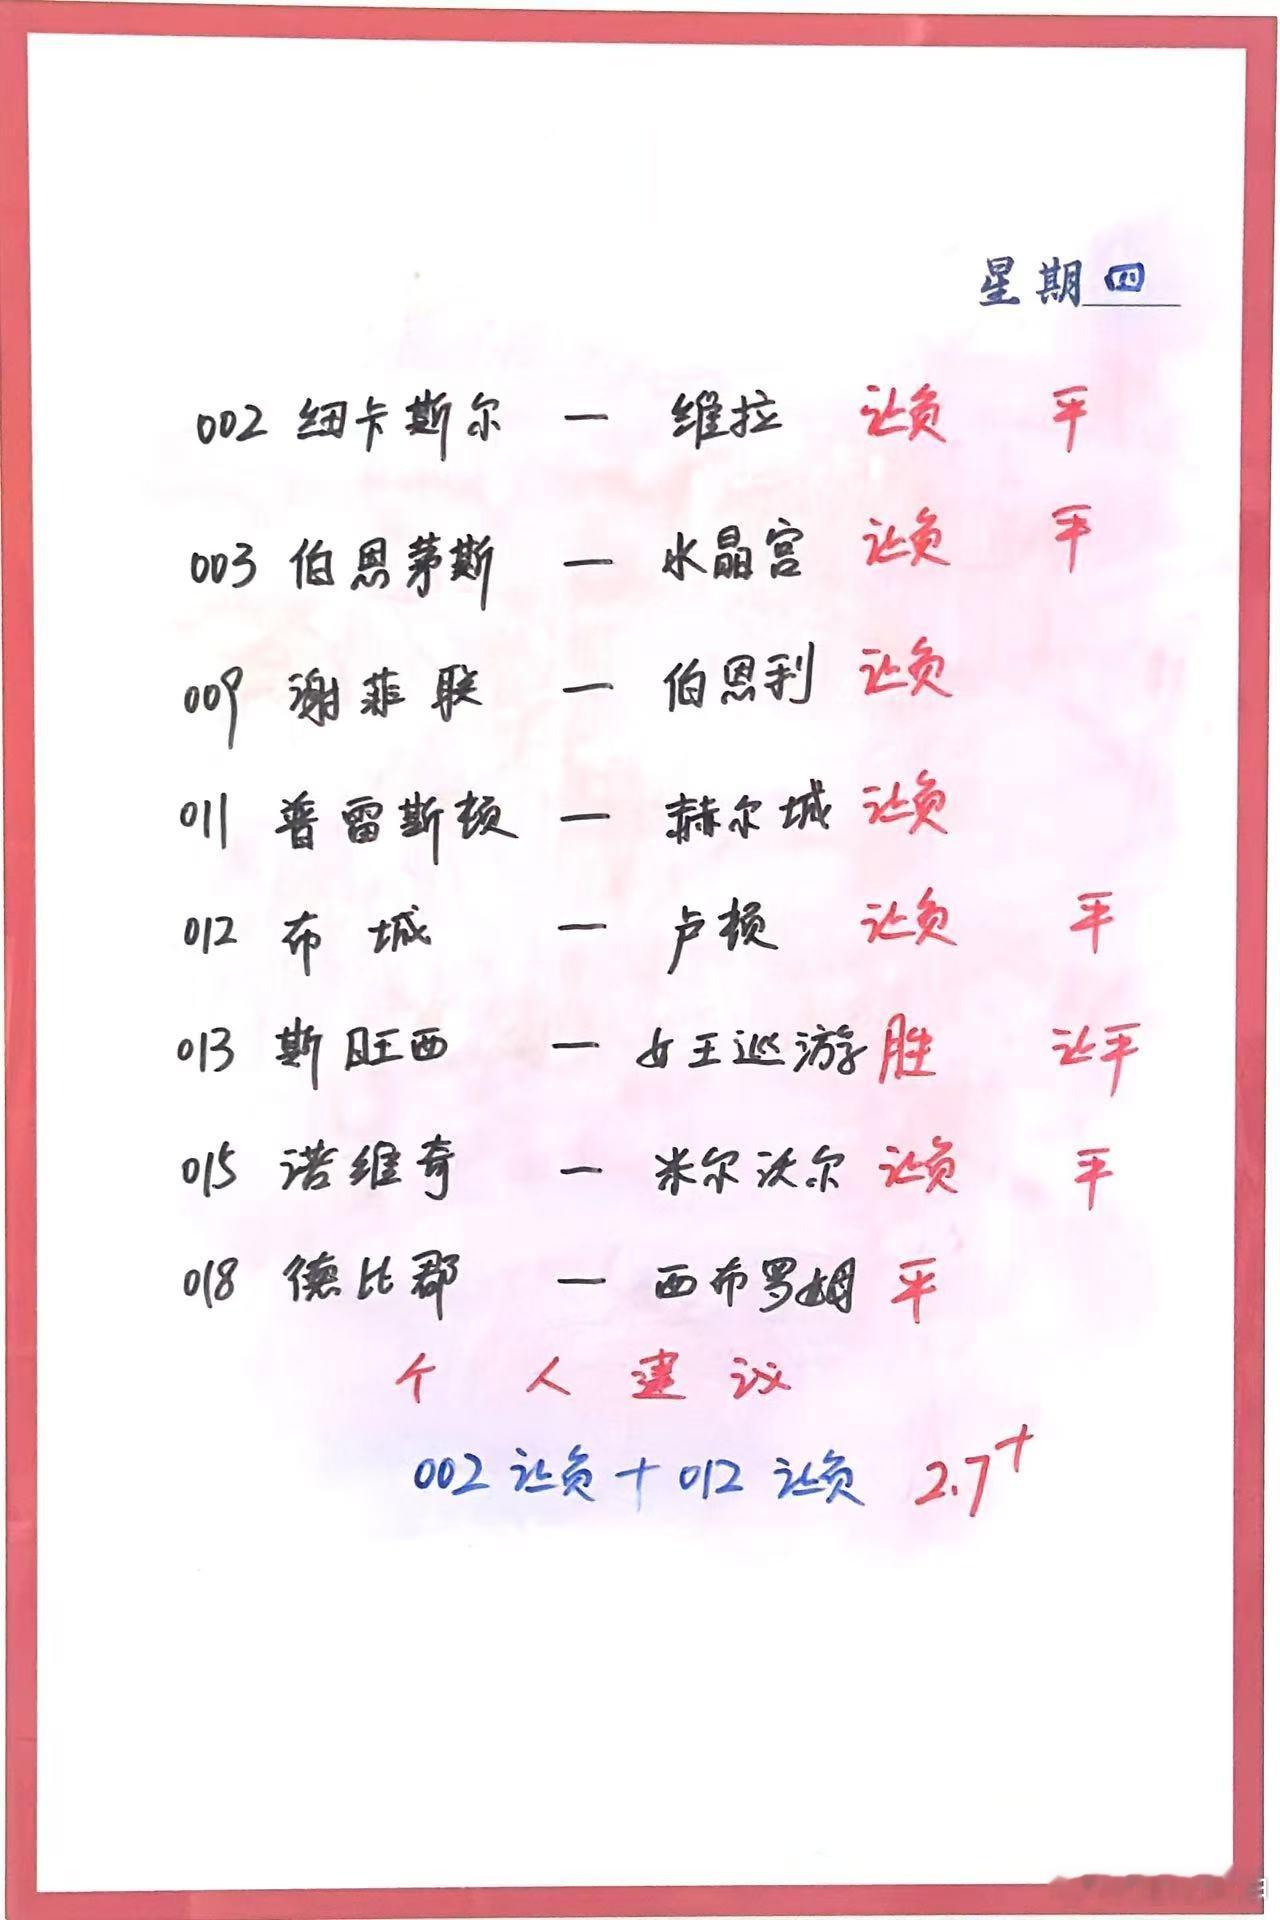 星期四
002 纽卡斯尔 — 维拉 让负 平
003 伯恩茅斯 — 水晶宫 让负 平
009 谢菲联 — 伯恩利 让负
011 普雷斯顿 — 赫尔城 让负
012 布城 — 卢顿 让负 平
013 斯旺西 — 女王巡游 胜 让平
015 诺维奇 — 米尔沃尔 让负 平
018 德比郡 — 西布罗姆 平
个人建议
002 让负 + 012 让负 2.7+